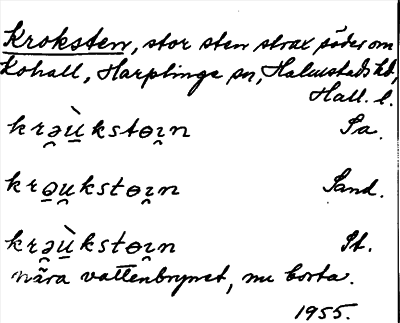 Kroksten, stor sten strax söder om
Kohall, Harplinge sn, Halmstads hd,
Hall. l.
krə̯ù̱kstɵı̯n Pa.
krə̱u̯kstɵı̯n Sand.
krə̯ù̱kstɵı̯n St.
nära vattenbrynet, nu borta.
1955.